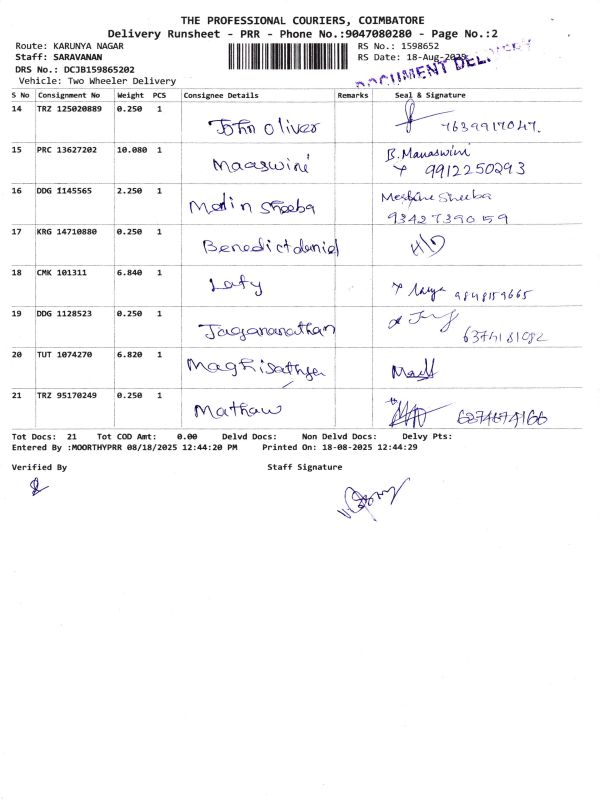 THE PROFESSIONAL COURIERS, COIMBATORE
Delivery Runsheet - PRR - Phone No.:9047080280 - Page No.:2
Route: KARUNYA NAGAR
Staff: SARAVANAN
DRS No.: DCJB159865202
Vehicle: Two Wheeler Delivery
RS No.: 1598652
RS Date: 18-Aug-2025
DOCUMENT DELIVERY
S No Consignment No Weight PCS Consignee Details Remarks Seal & Signature
14 TRZ 125020889 0.250 1 John oliver 7639917047.
15 PRC 13627202 10.080 1 Maaswini B. Manaswini
9912250293
16 DDG 1145565 2.250 1 Merlin sheeba Sheeba
9342739059
17 KRG 14710880 0.250 1 Benedict daniel
18 CMK 101311 6.840 1 Laty 9848159665
19 DDG 1128523 0.250 1 Jagananathan 6374181082
20 TUT 1074270 6.820 1
21 TRZ 95170249 0.250 1 Mathaw
Tot Docs: 21 Tot COD Amt: 0.00 Delvd Docs: Non Delvd Docs: Delvy Pts:
Entered By :MOORTHYPRR 08/18/2025 12:44:20 PM Printed On: 18-08-2025 12:44:29
Verified By Staff Signature